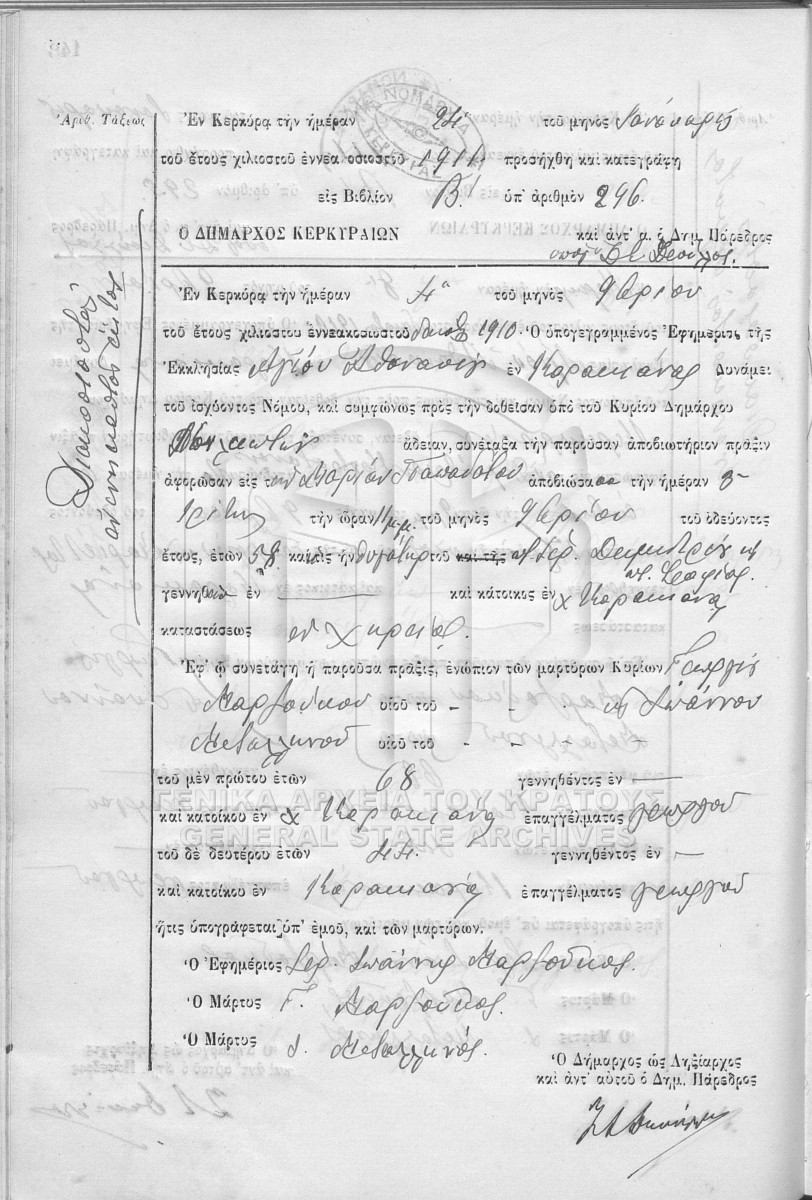 Ἀριθ. Τάξεως
Ἐν Κερκύρᾳ τὴν ἡμέραν 24 τοῦ μηνὸς Ἰανουαρίου
τοῦ ἔτους χιλιοστοῦ ἐννεακοσιοστοῦ 1911 προσήχθη καὶ κατεγράφη
εἰς Βιβλίον Β! ὑπ' ἀριθμὸν 296.
Ὁ ΔΗΜΑΡΧΟΣ ΚΕΡΚΥΡΑΙΩΝ καὶ ἀντ' α. ὁ Δημ. Πάρεδρος
Διακοσιοστὸν
ἐνενηκοστὸν ἕκτον
Ἐν Κερκύρᾳ τὴν ἡμέραν 4η τοῦ μηνὸς 9βρίου
τοῦ ἔτους χιλιοστοῦ ἐννεακοσιοστοῦ δεκάτου 1910 Ὁ ὑπογεγραμμένος Ἐφημέριος τῆς
Ἐκκλησίας Ἁγίου Ἀθανασίου ἐν Καρακιάνα Δυνάμει
τοῦ ἰσχύοντος Νόμου, καὶ συμφώνως πρὸς τὴν δοθεῖσαν ὑπὸ τοῦ Κυρίου Δημάρχου
ἄδειαν, συνέταξα τὴν παροῦσαν ἀποβιωτήριον πρᾶξιν
ἀφορῶσαν εἰς τὴν Μαρίαν ἀποβιώσασα τὴν ἡμέραν 3
Τρίτην τὴν ὥραν 11 μ.μ. τοῦ μηνὸς 9βρίου τοῦ ὁδεύοντος
ἔτους, ἐτῶν 58 καὶ ἥτις ἦν θυγάτηρ τοῦ καὶ τῆς ποτ. Ἱερ. Δημητρίου κ
π. Σοφίας.
γεννηθεῖσα ἐν — καὶ κάτοικος ἐν χ Καρακιανα
καταστάσεως ἐν χηρείᾳ.
Ἐφ' ᾧ συνετάγη ἡ παροῦσα πρᾶξις, ἐνώπιον τῶν μαρτύρων Κυρίων Γεωργίου
Μαρζούκου υἱοῦ τοῦ - - - κ Ἰωάννου
Μεταλληνοῦ υἱοῦ τοῦ - - - -
τοῦ μὲν πρώτου ἐτῶν 68 γεννηθέντος ἐν —
καὶ κατοίκου ἐν χ Καρακιανα ἐπαγγέλματος γεωργοῦ
τοῦ δὲ δευτέρου ἐτῶν 44. γεννηθέντος ἐν —
καὶ κατοίκου ἐν Καρακιανα ἐπαγγέλματος γεωργοῦ
ἥτις ὑπογράφεται ὑπ' ἐμοῦ, καὶ τῶν μαρτύρων.
Ὁ Ἐφημέριος Ἱερ. Ἰωάννης Μαρζούκος.
Ὁ Μάρτυς Γ. Μαρζούκος.
Ὁ Μάρτυ Ι. Μεταλληνός.
Ὁ Δήμαρχος ὡς Ληξίαρχος
καὶ ἀντ' αὐτοῦ ὁ Δημ. Πάρεδρος
ΓΕΝΙΚΑ ΑΡΧΕΙΑ ΤΟΥ ΚΡΑΤΟΥΣ
GENERAL STATE ARCHIVES